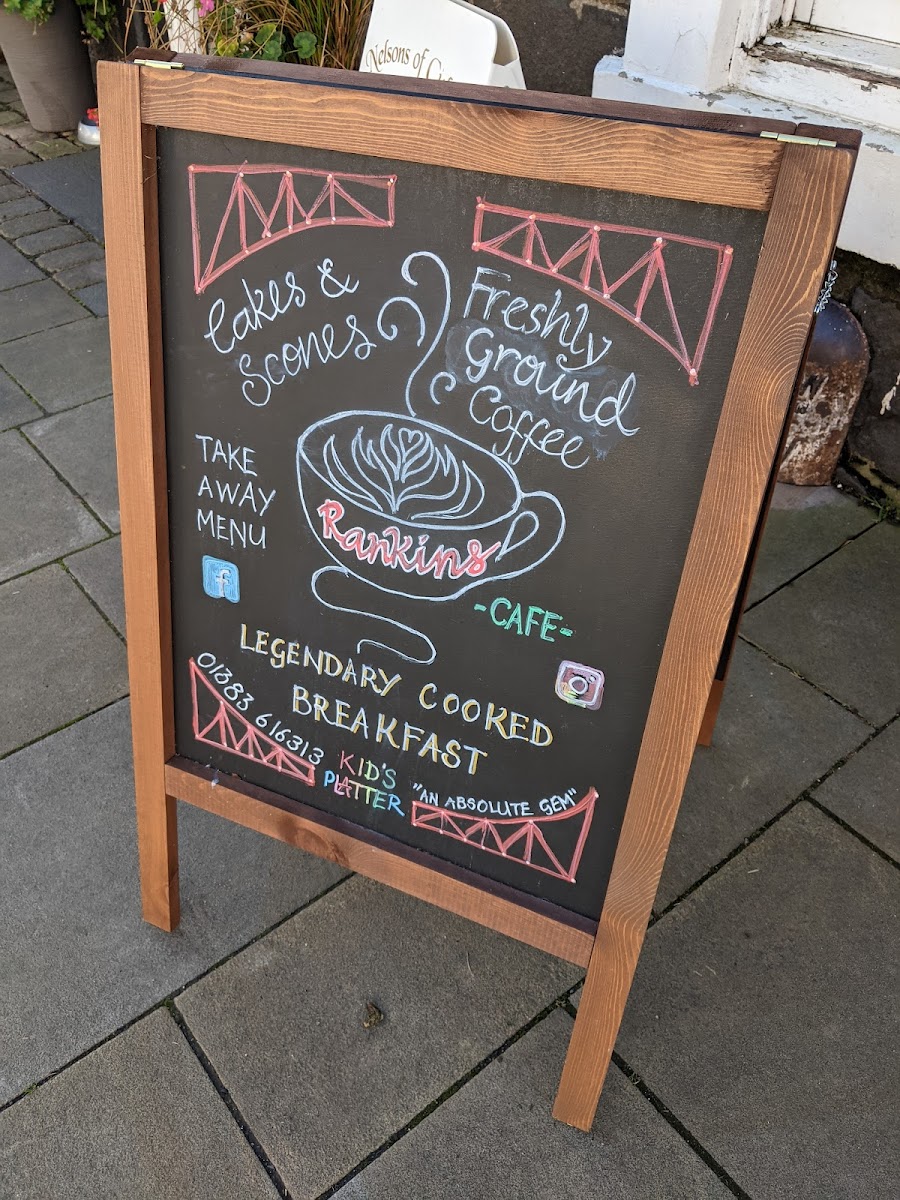 Nelsons of
Cakes &
Scones
Freshly
Ground
Coffee
TAKE
AWAY
MENU
f
Rankins
-CAFE-
LEGENDARY COOKED
BREAKFAST
01383 616313
KID'S
PLATTER
"AN ABSOLUTE GEM"